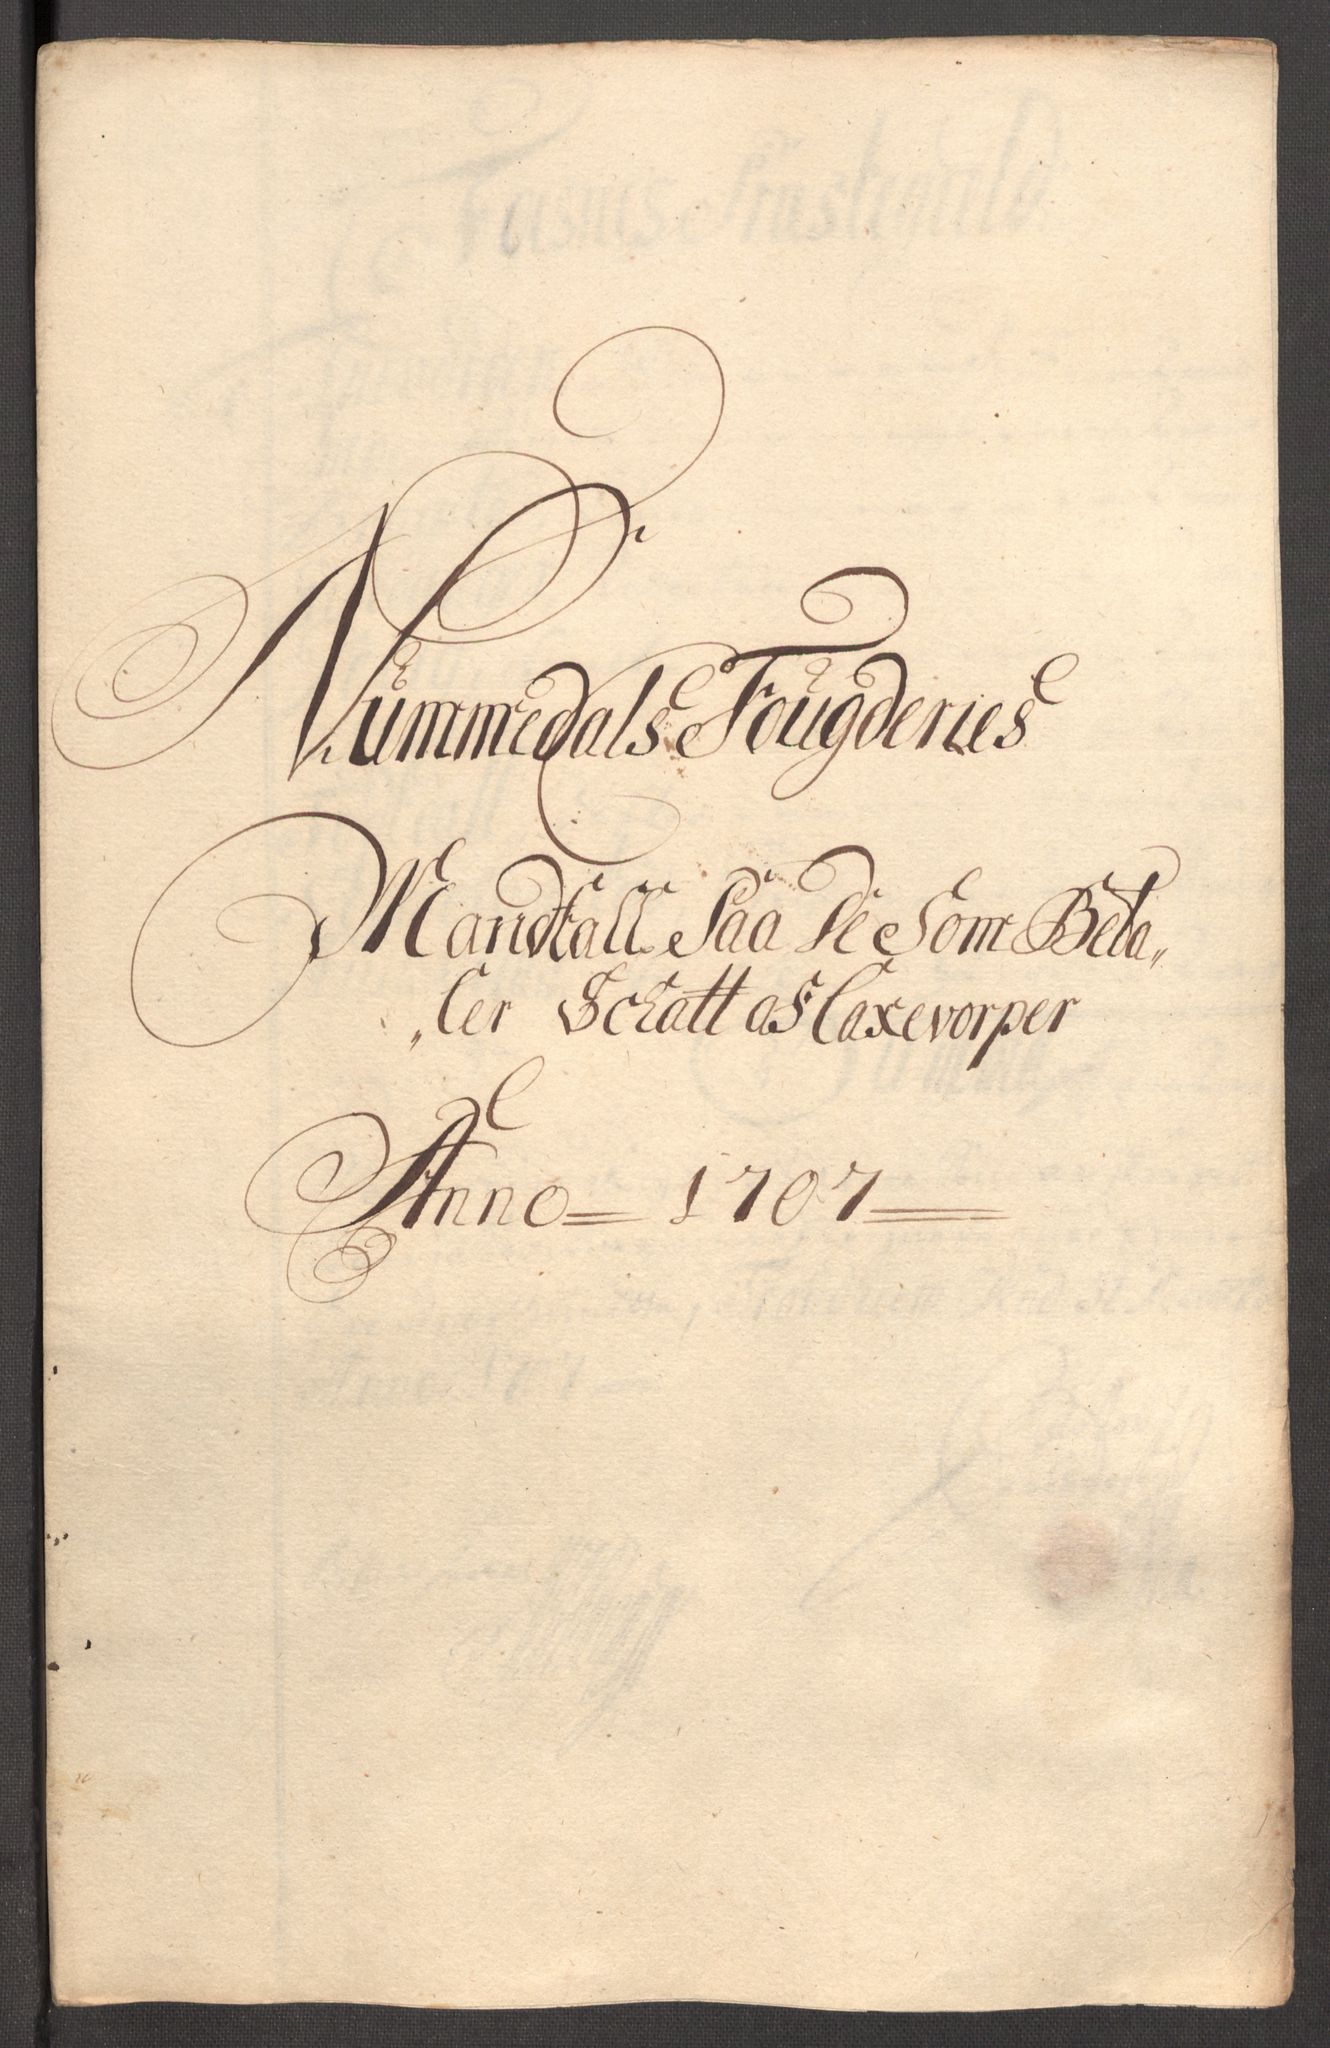 Nummedals Fougderies
Mandtall Paa De Som Beta„
„ler Schatt af Laxevorper
Anno 1707